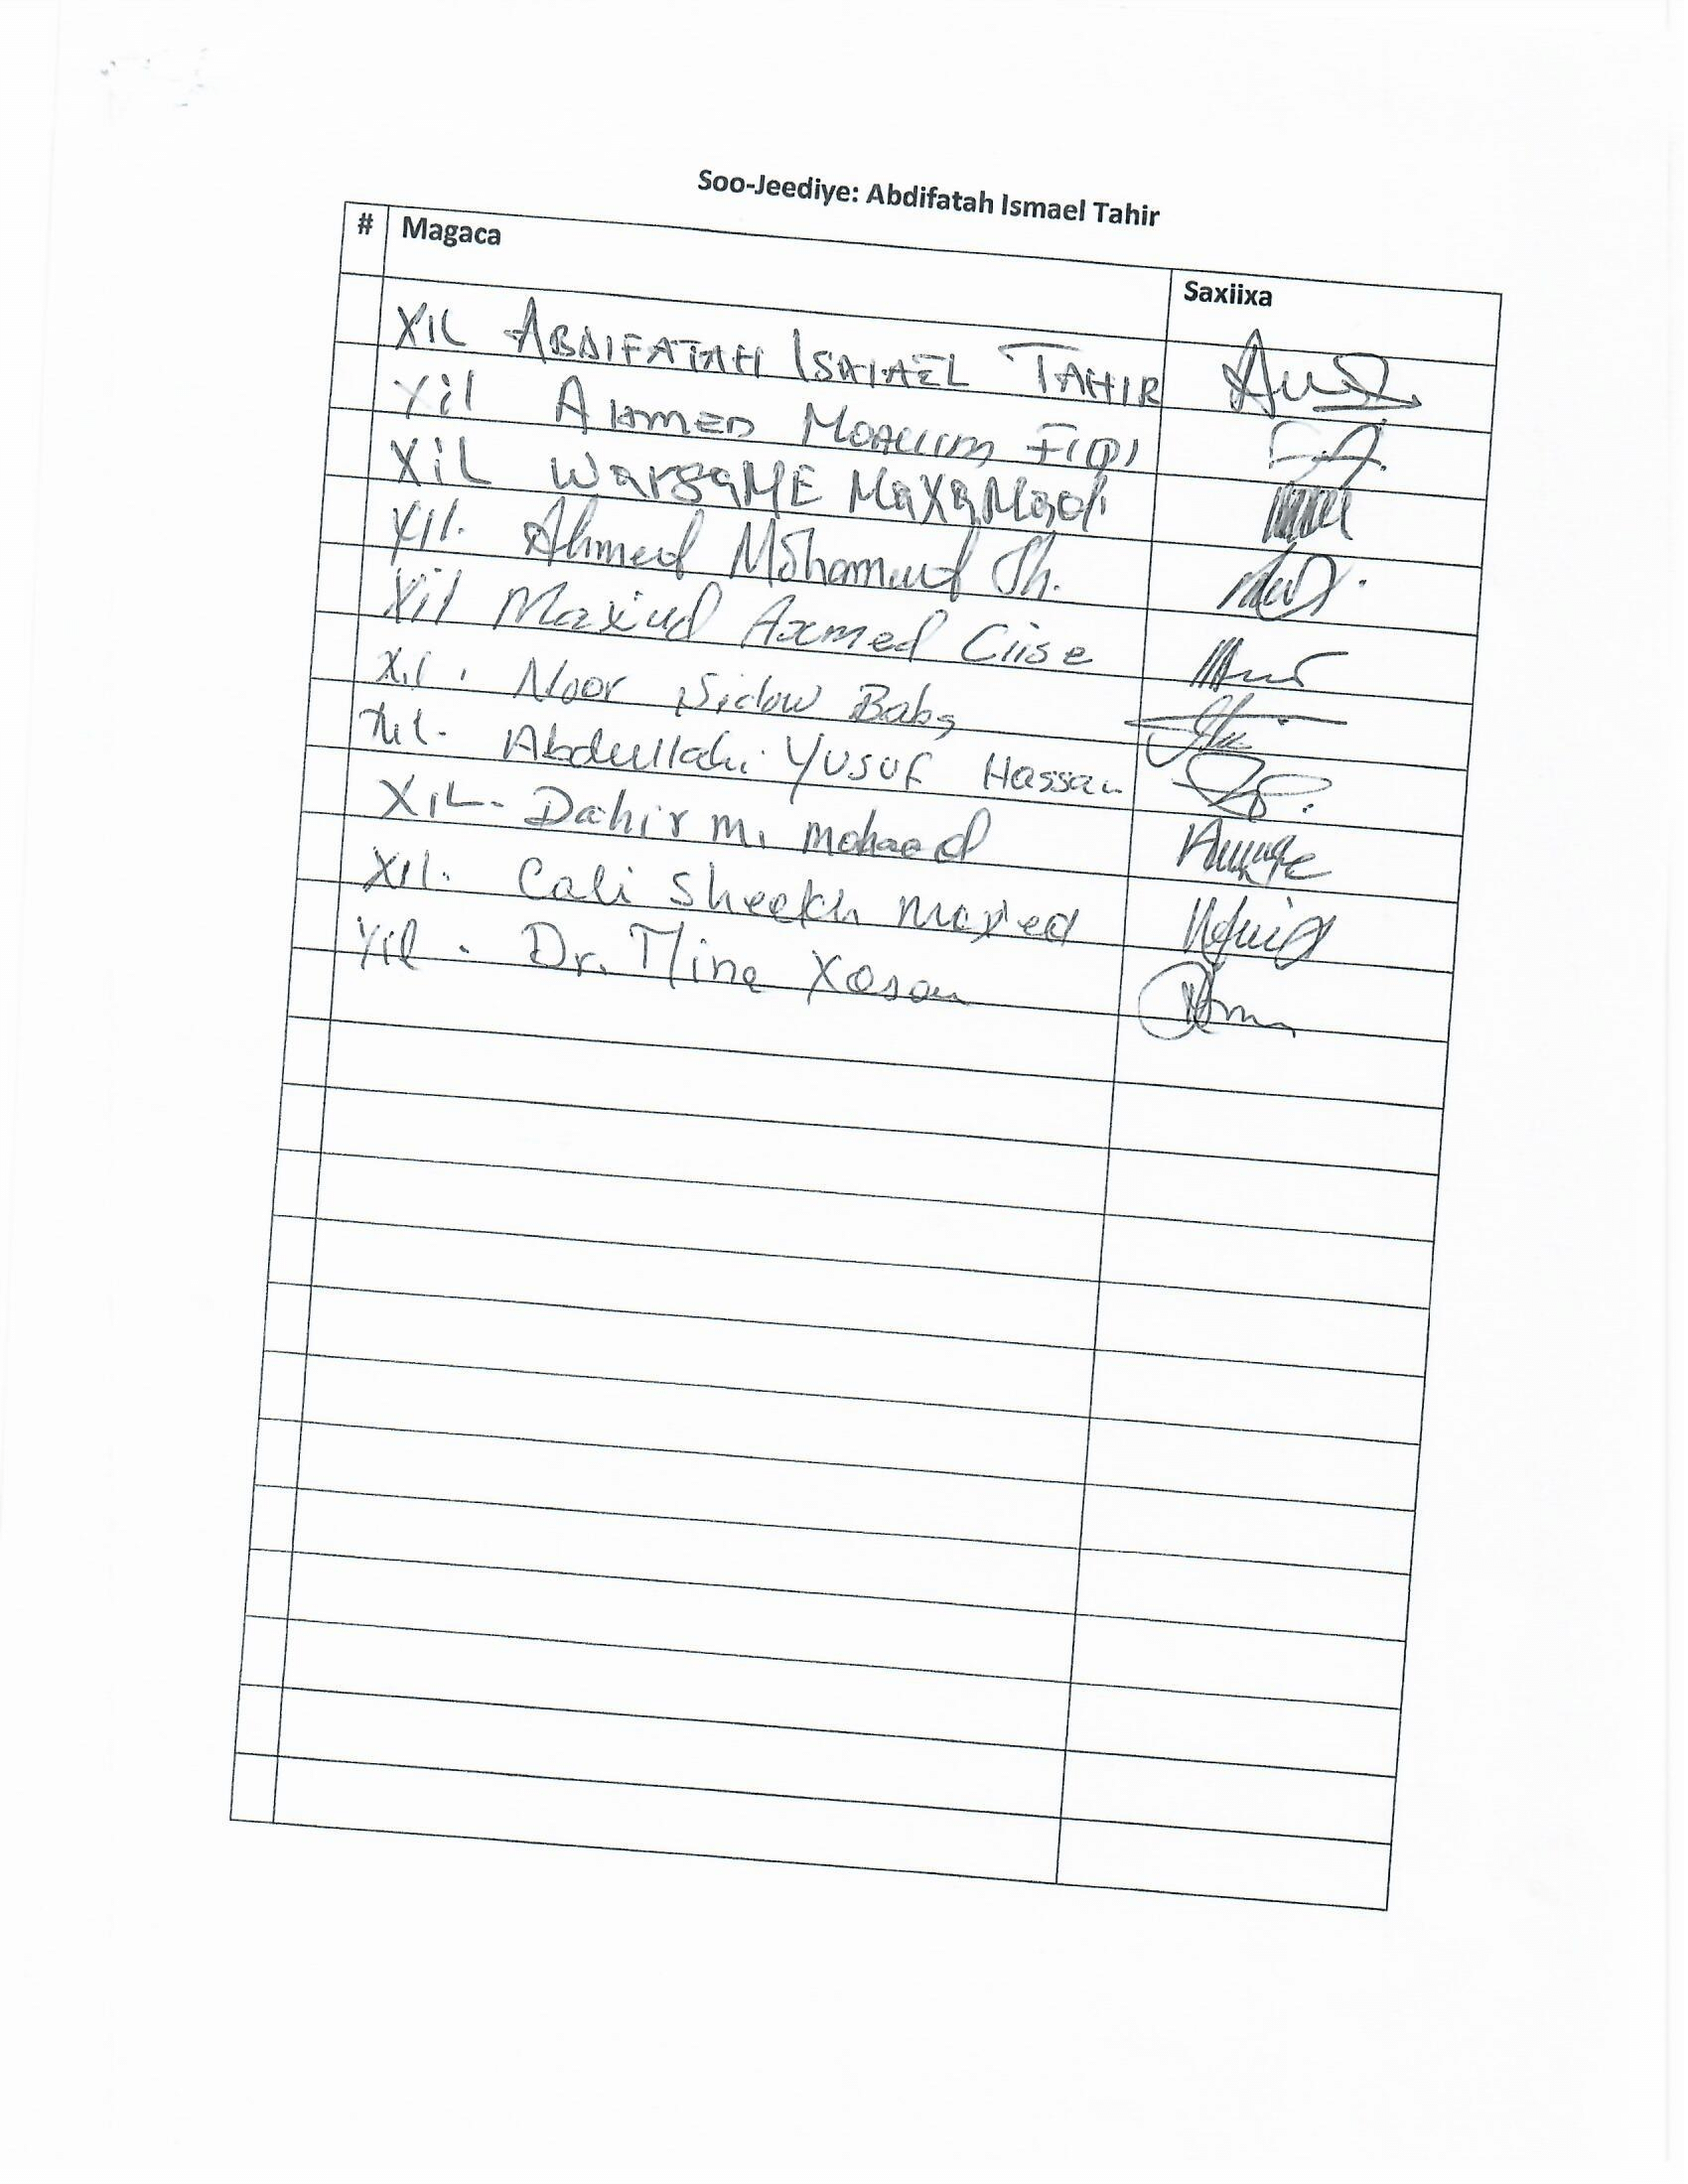 Soo-Jeediye: Abdifatah Ismael Tahir
# Magaca Saxiixa
XIL ABDIFATAH ISMAEL TAHIR
Xil AHMED MOALLIM FIQI
XiL WARSAME MaXaMooD
XIL. Ahmed Mohamud Sh.
Xil Maxiud Axmed Ciise
XiL. Noor Sidow Baba
Xil. Abdullahi Yusuf Hassan
XIL- Dahir M.
XIL. Cali Sheekh Maxed
Xil. Dr. Xasan